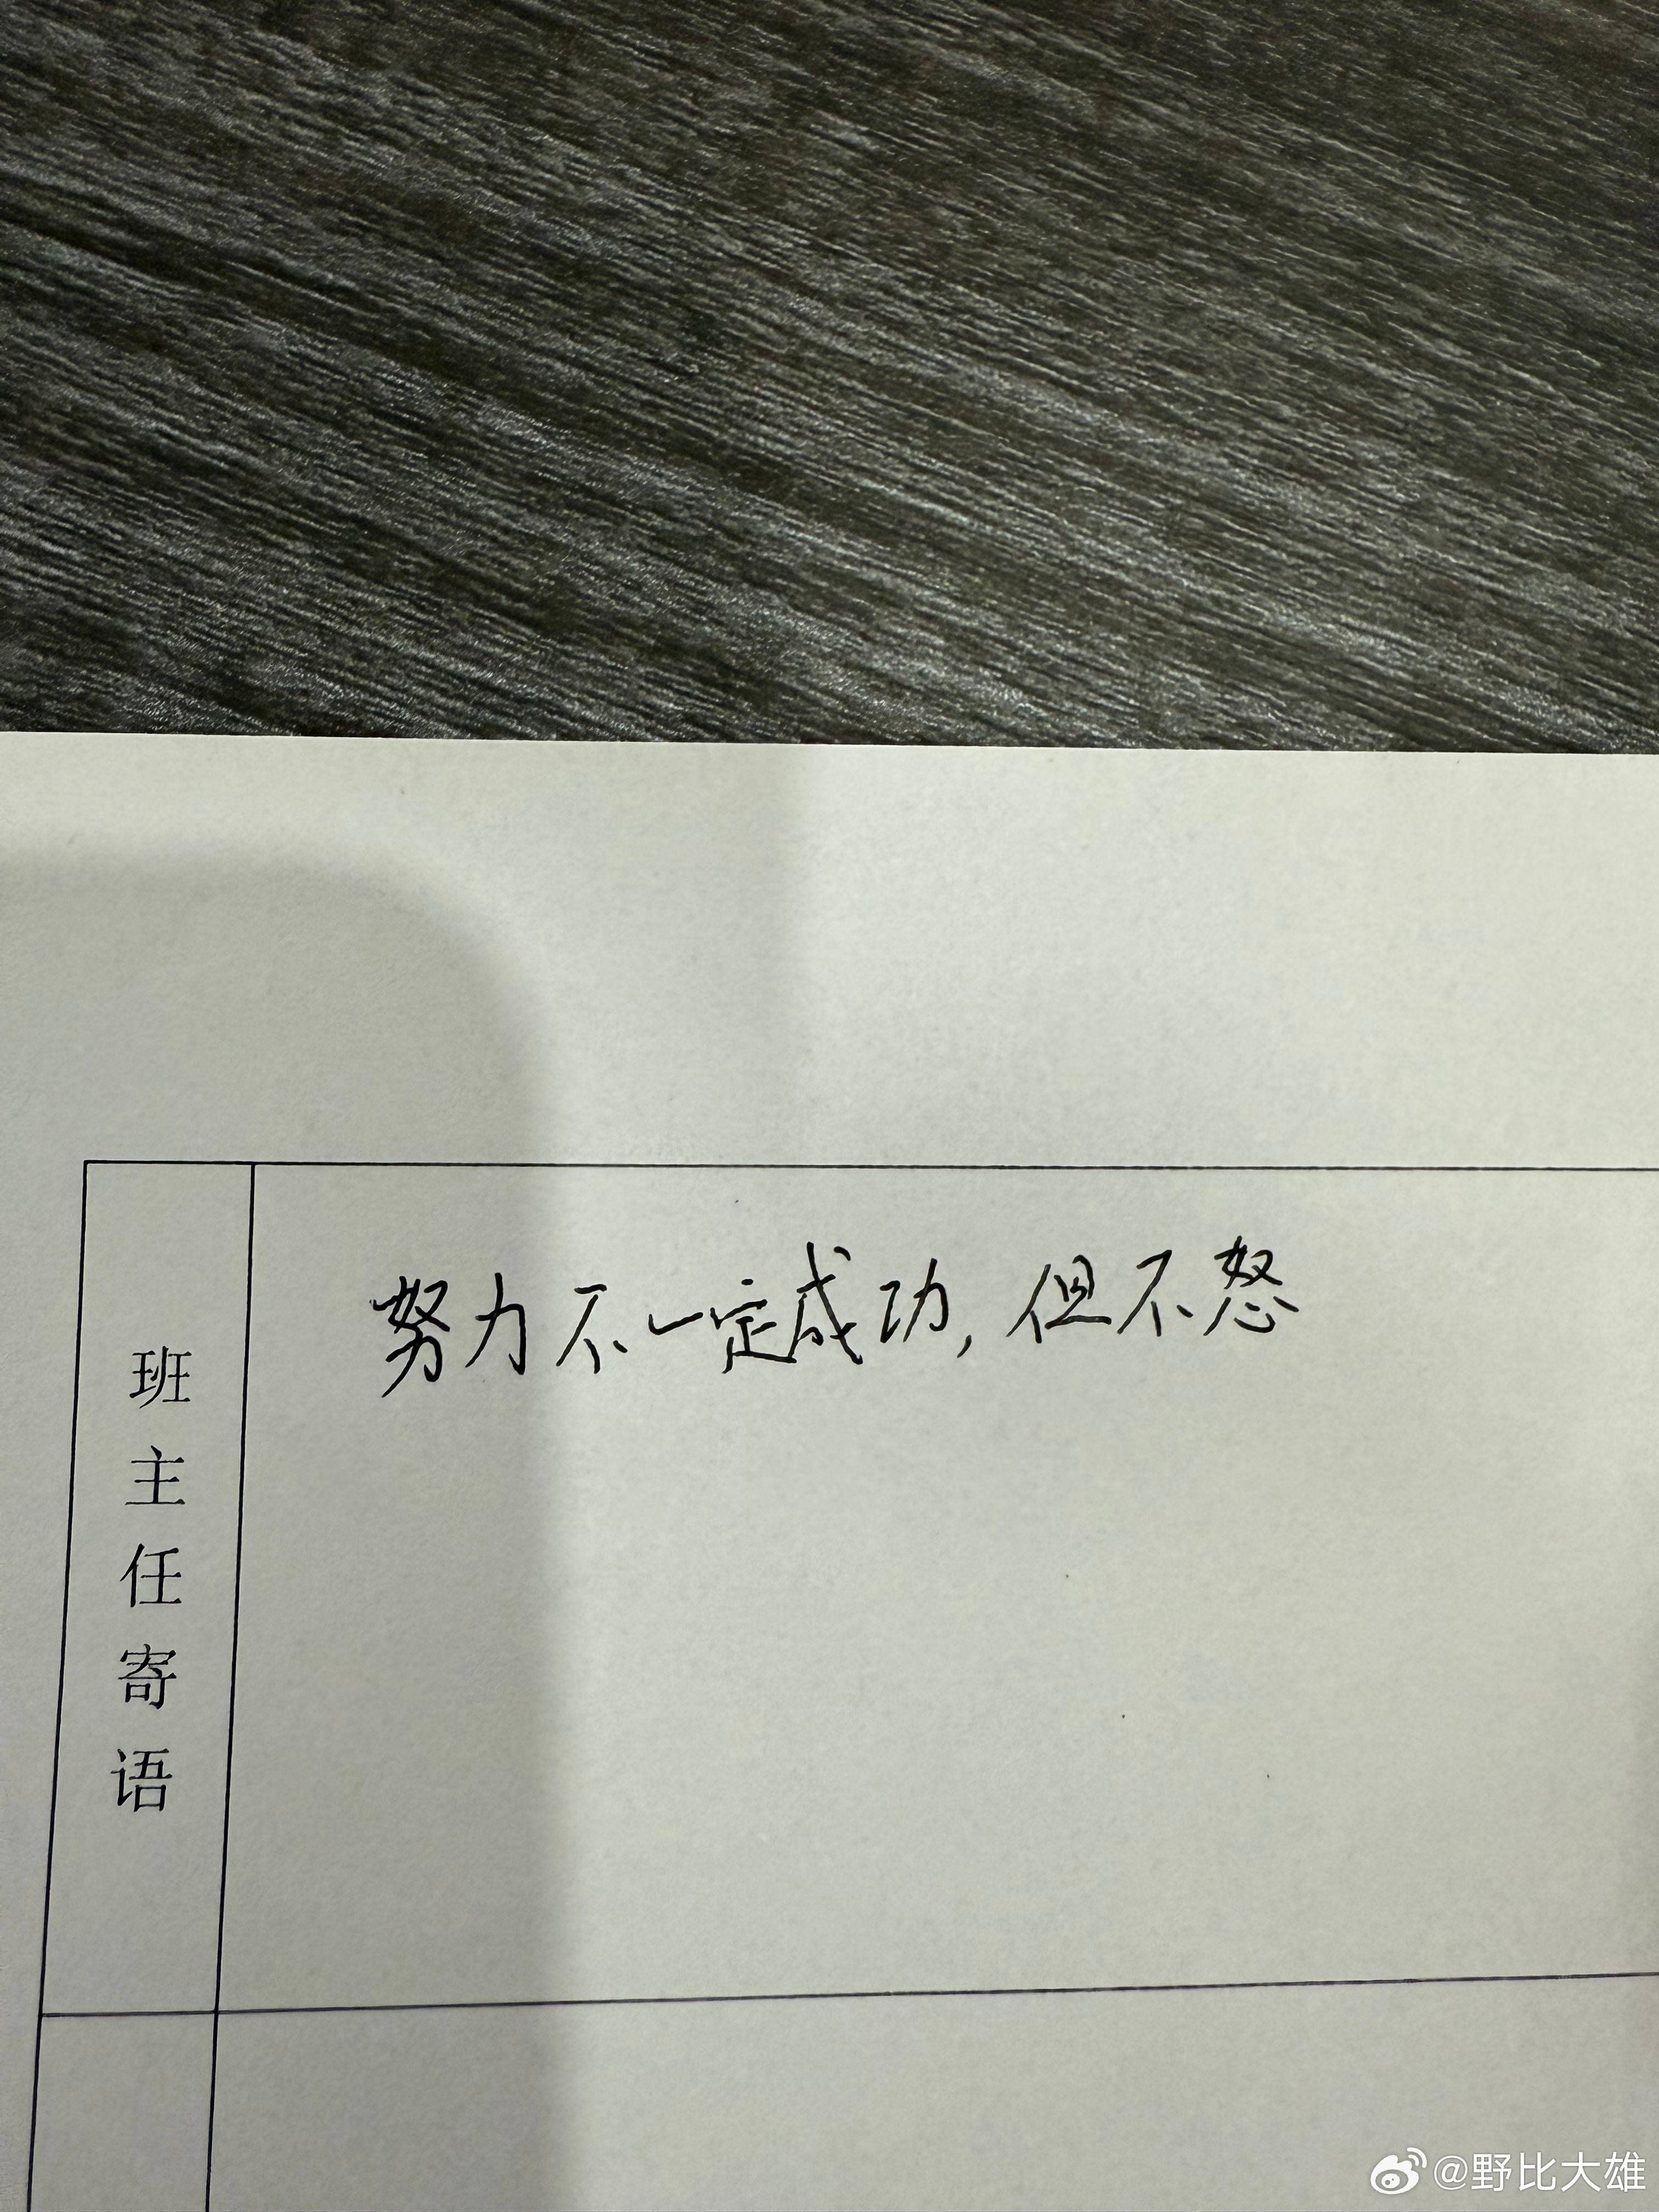 努力不一定成功,但不怒
班主任寄语
@野比大雄